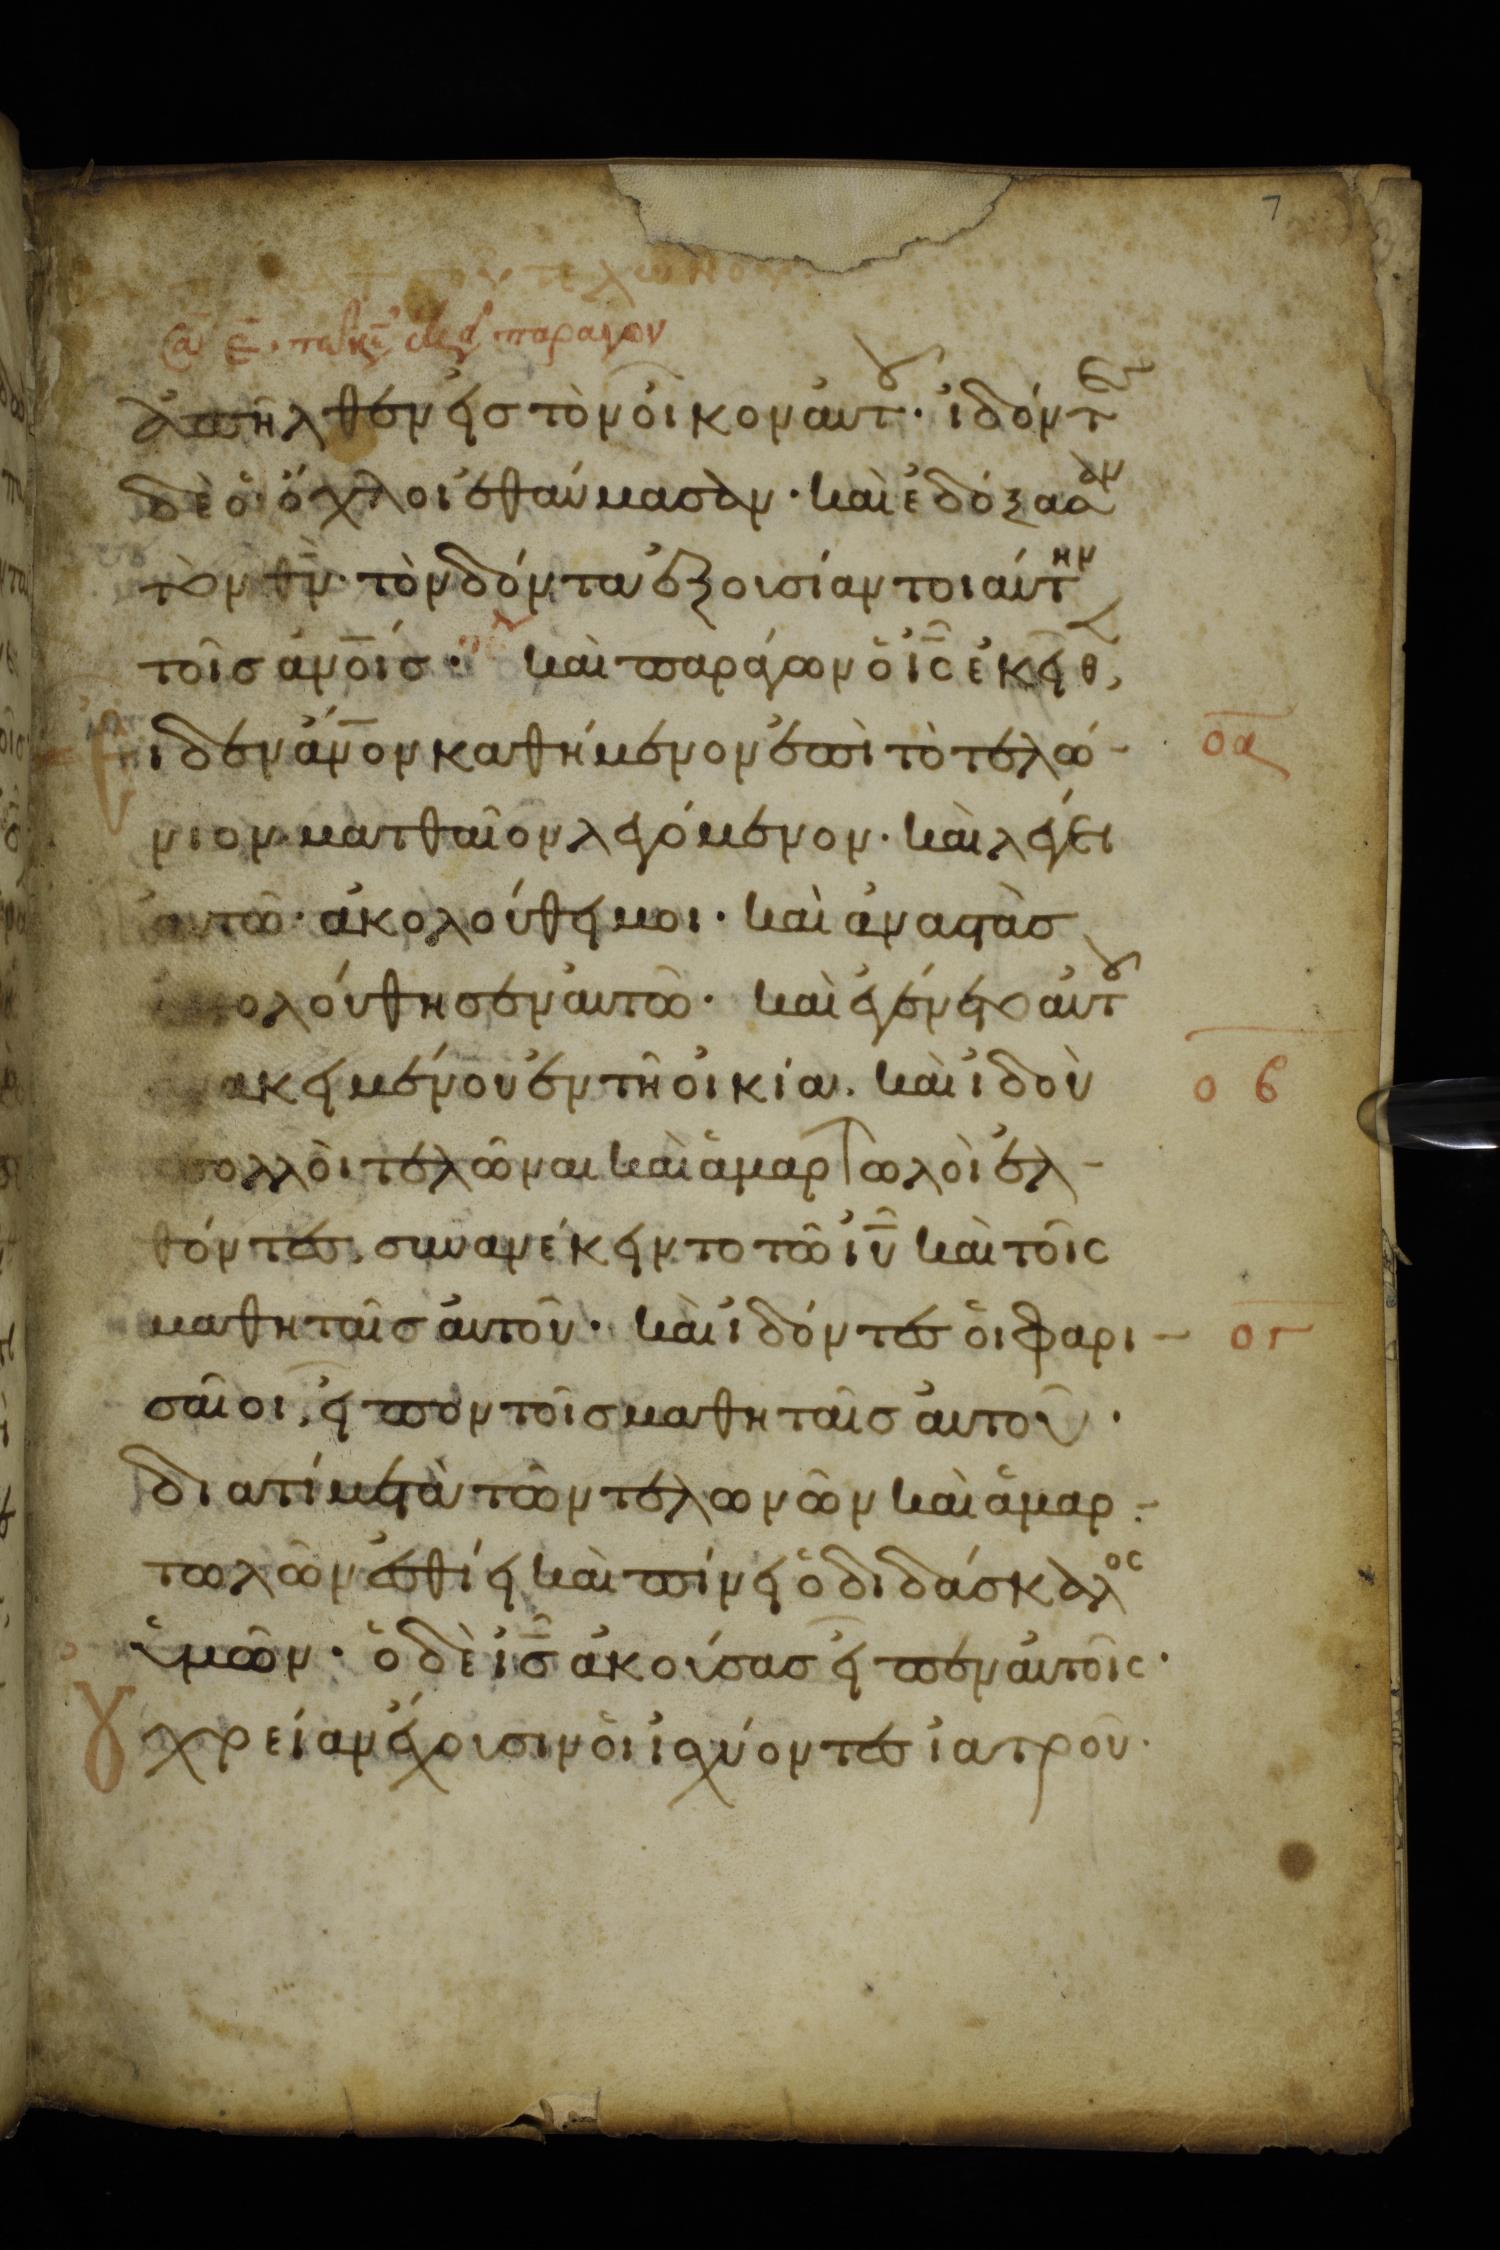 7
τελωνου
παραγων
ἀπῆλθεν εἰς τὸν οἶκον αὐτοῦ· ἰδόντες
δὲ οἱ ὄχλοι ἐθαύμασαν· καὶ ἐδόξασαν
τὸν θν· τὸν δόντα ἐξουσίαν τοιαύτην
τοῖς ἀνοις· καὶ παράγων ὁ ις ἐκεῖθεν,
ἰδεν ἀνον καθήμενον ἐπὶ τὸ τελώ-
νιον ματθαῖον λεγόμενον· καὶ λέγει
αὐτῶ· ἀκολούθει μοι· καὶ ἀναστὰς
ἠκολούθησεν αὐτῶ· καὶ ἐγένετο αὐτοῦ
ἀνακειμένου ἐν τῆ οἰκία. καὶ ἰδοὺ
πολλοὶ τελῶναι καὶ ἁμαρτωλοὶ ἐλ-
θόντες, συνανέκειντο τῶ ιυ καὶ τοῖς
μαθηταῖς αὐτοῦ· καὶ ἰδόντες οἱ φαρι-
σαῖοι, εἶπον τοῖς μαθηταῖς αὐτοῦ·
διατί μετὰ τῶν τελωνῶν καὶ ἁμαρ-
τωλῶν ἐσθίει καὶ πίνει ὁ διδάσκαλος
ὑμῶν· ὁ δὲ ις ἀκούσας εἶπεν αὐτοῖς·
χρείαν ἔχουσιν οἱ ἰσχύοντες ἰατροῦ·
οα
οβ
ογ
γ